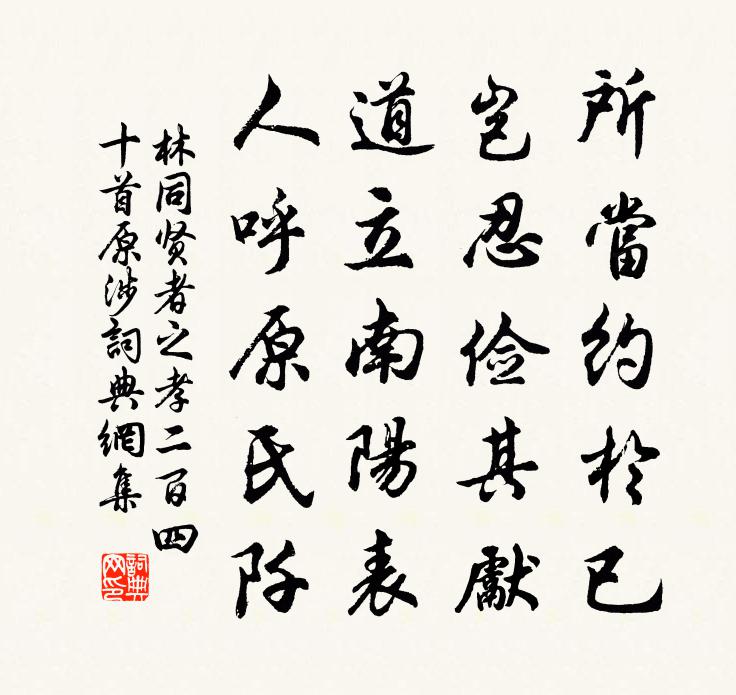 所當約於已
豈忍儉其獻
道立南陽表
人呼原氏阡
林同贤者之孝二百四
十首原涉詞典網集
詞典
网印